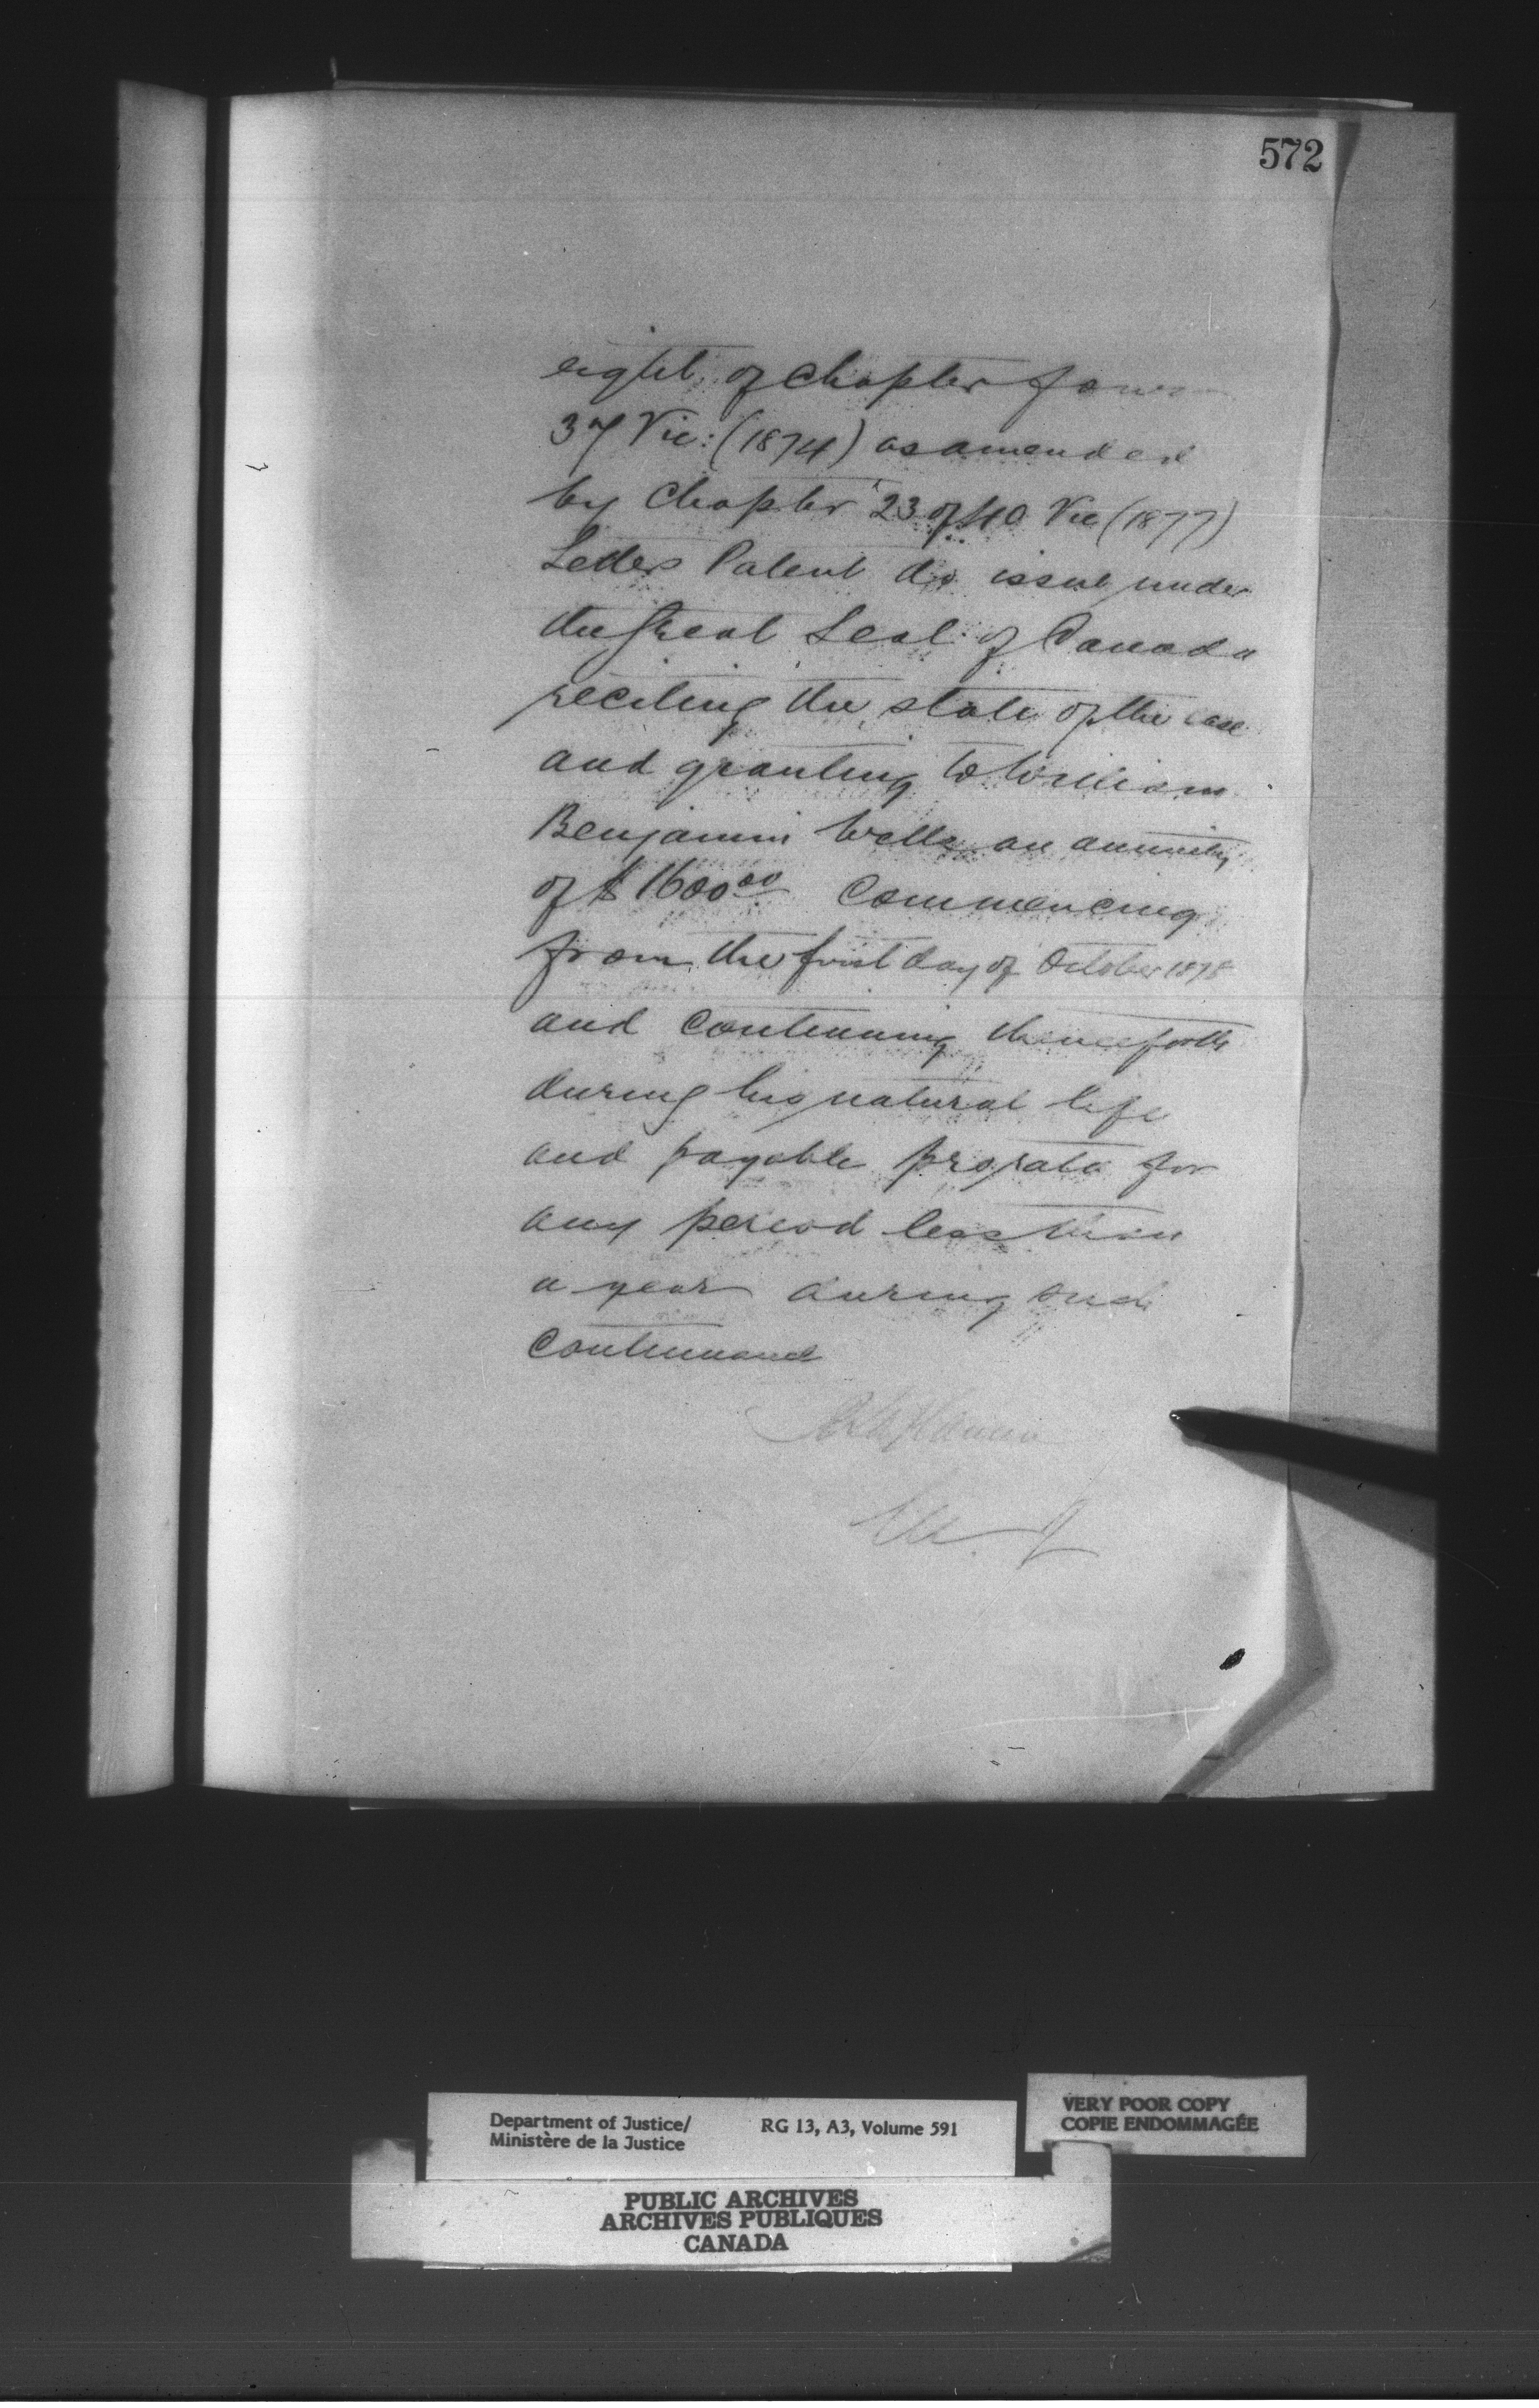 572
eight of Chapter four
37 Vic: (1874) as amended
by Chapter 23 of 40 Vic (1877)
Letters Patent do issue under
the Great Seal of Canada
reciting the state of the case
and granting to William
Benjamin Wells an annuity
of $1600.00 Commencing
from the first day of October 1878
and continuing thenceforth
during his natural life
and payable prorata for
any period less than
a year during such
Continuance
Department of Justice/
Ministère de la Justice
RG 13, A3, Volume 591
VERY POOR COPY
COPIE ENDOMMAGÉE
PUBLIC ARCHIVES
ARCHIVES PUBLIQUES
CANADA